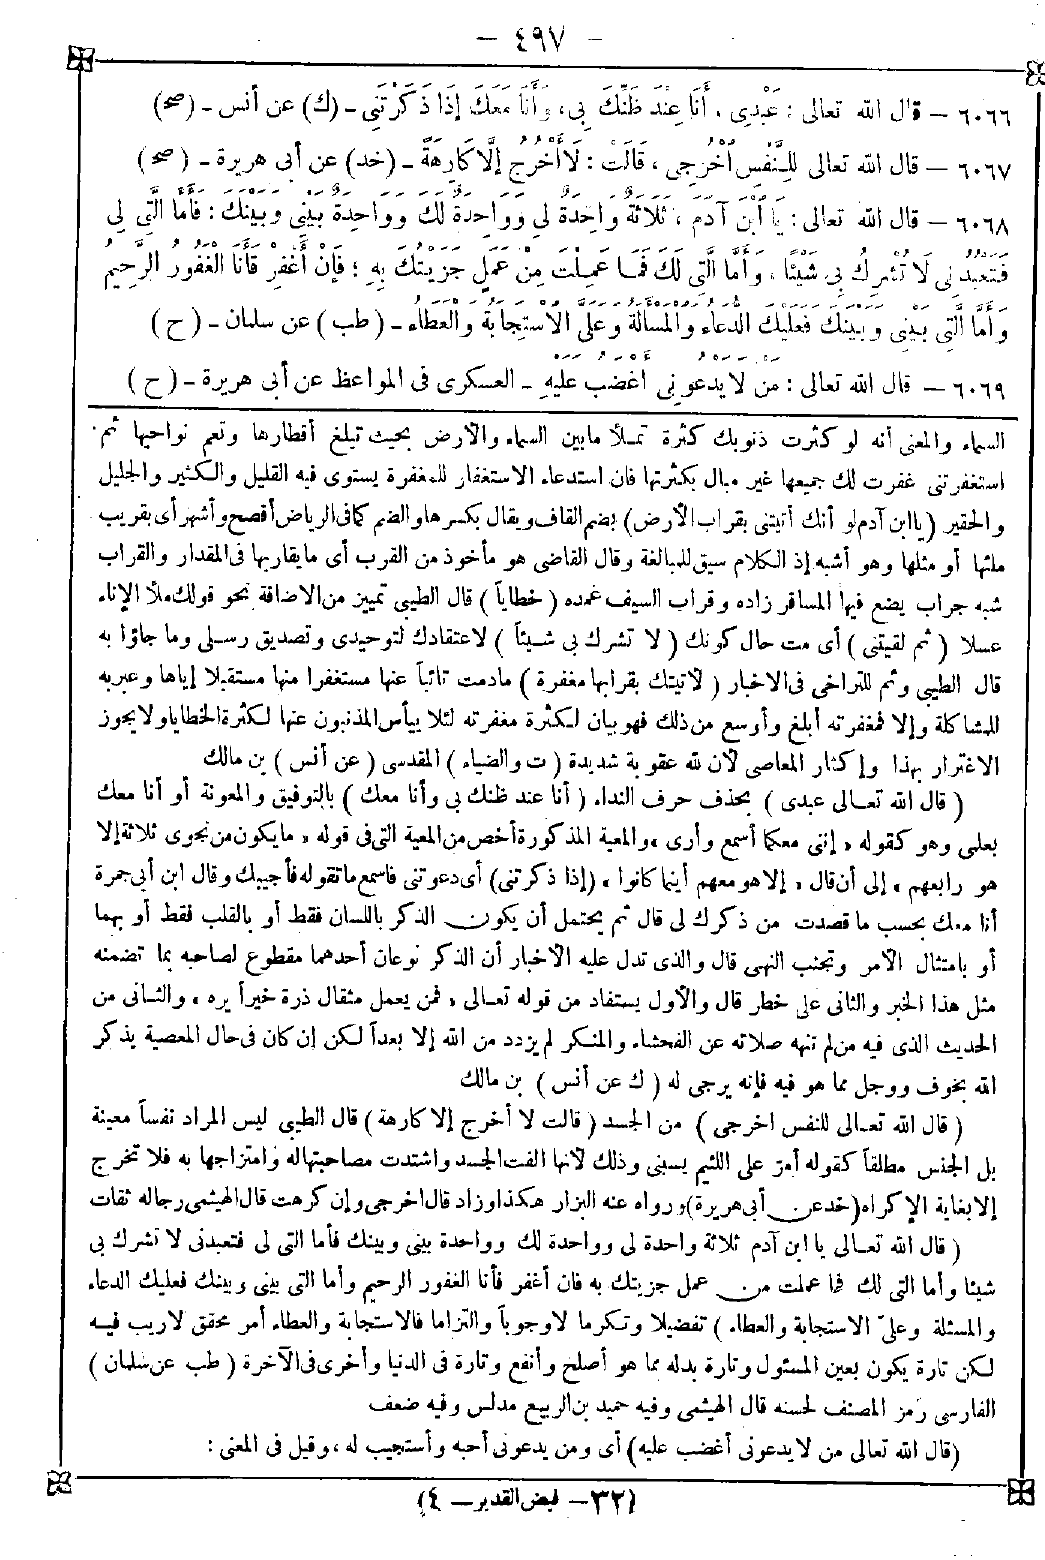 – ٤٩٧ –
٦٠٦٦ – قَالَ اللهُ تعالى: عَبْدِى، أَنَا عِنْدَ ظَنِّكَ بِى، وَأَنَا مَعَكَ إِذَا ذَكَرْتَنِى – (ك) عن أنس – (صح)
٦٠٦٧ – قال اللهُ تعالى لِلنَّفْسِ اخْرُجِى، قَالَتْ: لَا أَخْرُجُ إِلَّا كَارِهَةً – (خد) عن أبى هريرة – (صح)
٦٠٦٨ – قال اللهُ تعالى: يَا ابْنَ آدَمَ، ثَلَاثَةٌ وَاحِدَةٌ لِى وَوَاحِدَةٌ لَكَ وَوَاحِدَةٌ بَيْنِى وَبَيْنَكَ: فَأَمَّا الَّتِى لِى
فَتَعْبُدُنِى لَا تُشْرِكُ بِى شَيْئًا، وَأَمَّا الَّتِى لَكَ فَمَا عَمِلْتَ مِنْ عَمَلٍ جَزَيْتُكَ بِهِ؛ فَإِنْ أَغْفِرْ فَأَنَا الْغَفُورُ الرَّحِيمُ
وَأَمَّا الَّتِى بَيْنِى وَبَيْنَكَ فَعَلَيْكَ الدُّعَاءُ وَالْمَسْأَلَةُ وَعَلَىَّ الْاسْتِجَابَةُ وَالْعَطَاءُ – (طب) عن سلمان – (ح)
٦٠٦٩ – قال اللهُ تعالى: مَنْ لَا يَدْعُونِى أَغْضَبُ عَلَيْهِ – العسكرى فى المواعظ عن أبى هريرة – (ح)
السماء والمعنى أنه لو كثرت ذنوبك كثرة تملأ مابين السماء والأرض بحيث تبلغ أقطارها وتعم نواحيها ثم
استغفرتنى غفرت لك جميعها غير مبال بكثرتها فان استدعاء الاستغفار للمغفرة يستوى فيه القليل والكثير والجليل
والحقير (يا ابن آدم لو أنك أتيتنى بقراب الأرض) بضم القاف ويقال بكسرها والضم كما فى الرياض أفصح وأشهر أى بقريب
ملئها أو مثلها وهو أشبه إذ الكلام سيق للمبالغة وقال القاضى هو مأخوذ من القرب أى ما يقاربها فى المقدار والقراب
شبه جراب يضع فيها المسافر زاده وقراب السيف غمده (خطايا) قال الطيبى تمييز من الاضافة نحو قولك ملأ الإناء
عسلا (ثم لقيتنى) أى مت حال كونك (لا تشرك بى شيئا) لاعتقادك لتوحيدى وتصديق رسلى وما جاؤا به
قال الطيبى وثم للتراخى فى الاخبار (لأتيتك بقرابها مغفرة) مادمت تائباً عنها مستغفرا منها مستقيلا إياها وعبر به
للمشاكلة وإلا فمغفرته أبلغ وأوسع من ذلك فهو بيان لكثرة مغفرته لئلا ييأس المذنبون عنها لكثرة الخطايا ولا يجوز
الاغترار بهذا وإكثار المعاصى لأن لله عقوبة شديدة (ت والضياء) المقدسى (عن أنس) بن مالك
(قال الله تعالى عبدى) بحذف حرف النداء (أنا عند ظنك بى وأنا معك) بالتوفيق والمعونة أو أنا معك
بعلمى وهو كقوله «إننى معكما أسمع وأرى» والمعية المذكورة أخص من المعية التى فى قوله «ما يكون من نجوى ثلاثة إلا
هو رابعهم» إلى أن قال «إلا هو معهم أينما كانوا» (إذا ذكرتنى) أى دعوتنى فاسمع ما تقوله فأجيبك وقال ابن أبى جمرة
أنا معك بحسب ما قصدت من ذكرك لى قال ثم يحتمل أن يكون الذكر باللسان فقط أو بالقلب فقط أو بهما
أو بامتثال الأمر وتجنب النهى قال والذى تدل عليه الأخبار أن الذكر نوعان أحدهما مقطوع لصاحبه بما تضمنه
مثل هذا الخبر والثانى على خطر قال والأول يستفاد من قوله تعالى «فمن يعمل مثقال ذرة خيراً يره» والثانى من
الحديث الذى فيه من لم تنهه صلاته عن الفحشاء والمنكر لم يزدد من الله إلا بعداً لكن إن كان فى حال المعصية يذكر
الله بخوف ووجل مما هو فيه فإنه يرجى له (ك عن أنس) بن مالك
(قال الله تعالى للنفس اخرجى) من الجسد (قالت لا أخرج إلا كارهة) قال الطيبى ليس المراد نفساً معينة
بل الجنس مطلقاً كقوله أمرّ على اللئيم يسبنى وذلك لأنها ألفت الجسد واشتدت مصاحبتها له وامتزاجها به فلا تخرج
إلا بغاية الإكراه (خد عن أبى هريرة) ورواه عنه البزار هكذا وزاد قال اخرجى وإن كرهت قال الهيثمى رجاله ثقات
(قال الله تعالى يا ابن آدم ثلاثة واحدة لى وواحدة لك وواحدة بينى وبينك فأما التى لى فتعبدنى لا تشرك بى
شيئا وأما التى لك فما عملت من عمل جزيتك به فان أغفر فأنا الغفور الرحيم وأما التى بينى وبينك فعليك الدعاء
والمسئلة وعلىّ الاستجابة والعطاء) تفضيلا وتكرما لا وجوباً والتزاما فالاستجابة والعطاء أمر محقق لا ريب فيه
لكن تارة يكون بعين المسئول وتارة بدله بما هو أصلح وأنفع وتارة فى الدنيا وأخرى فى الآخرة (طب عن سلمان)
الفارسى رمز المصنف لحسنه قال الهيثمى وفيه حميد بن الربيع مدلس وفيه ضعف
(قال الله تعالى من لا يدعونى أغضب عليه) أى ومن يدعونى أحبه وأستجيب له، وقيل فى المعنى:
(٣٢ – فيض القدير – ٤)